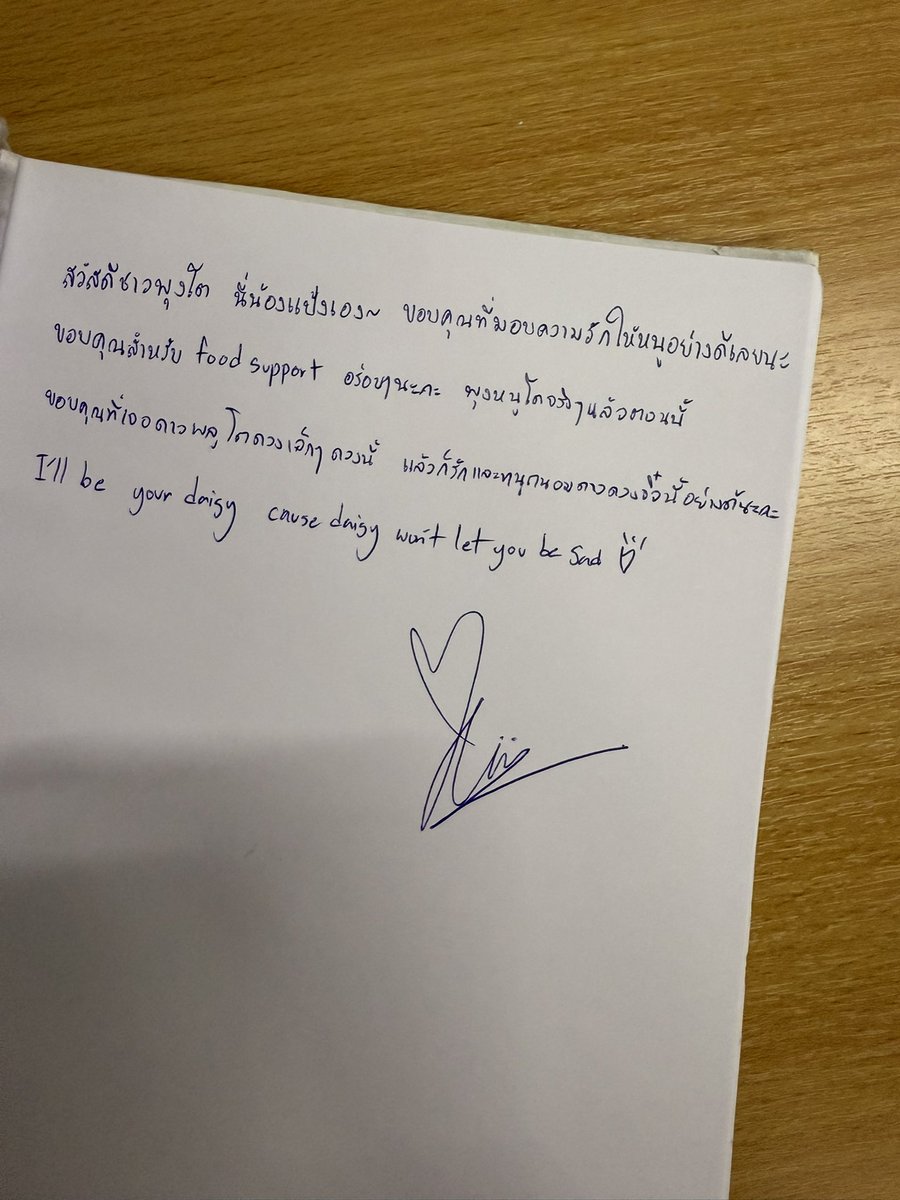 สวัสดีชาวพุงโต นี่น้องแป้งเอง~ ขอบคุณที่มอบความรักให้หนูอย่างดีเลยนะ
ขอบคุณสำหรับ food support อร่อยๆนะคะ พุงหนูโตจริงๆแล้วตอนนี้
ขอบคุณที่เจอดาวพลูโตดวงเล็กๆดวงนี้ แล้วก็รักและทนุถนอมดาวดวงจิ๋วนี้อย่างดีนะคะ
I'll be your daisy cause daisy won't let you be sad